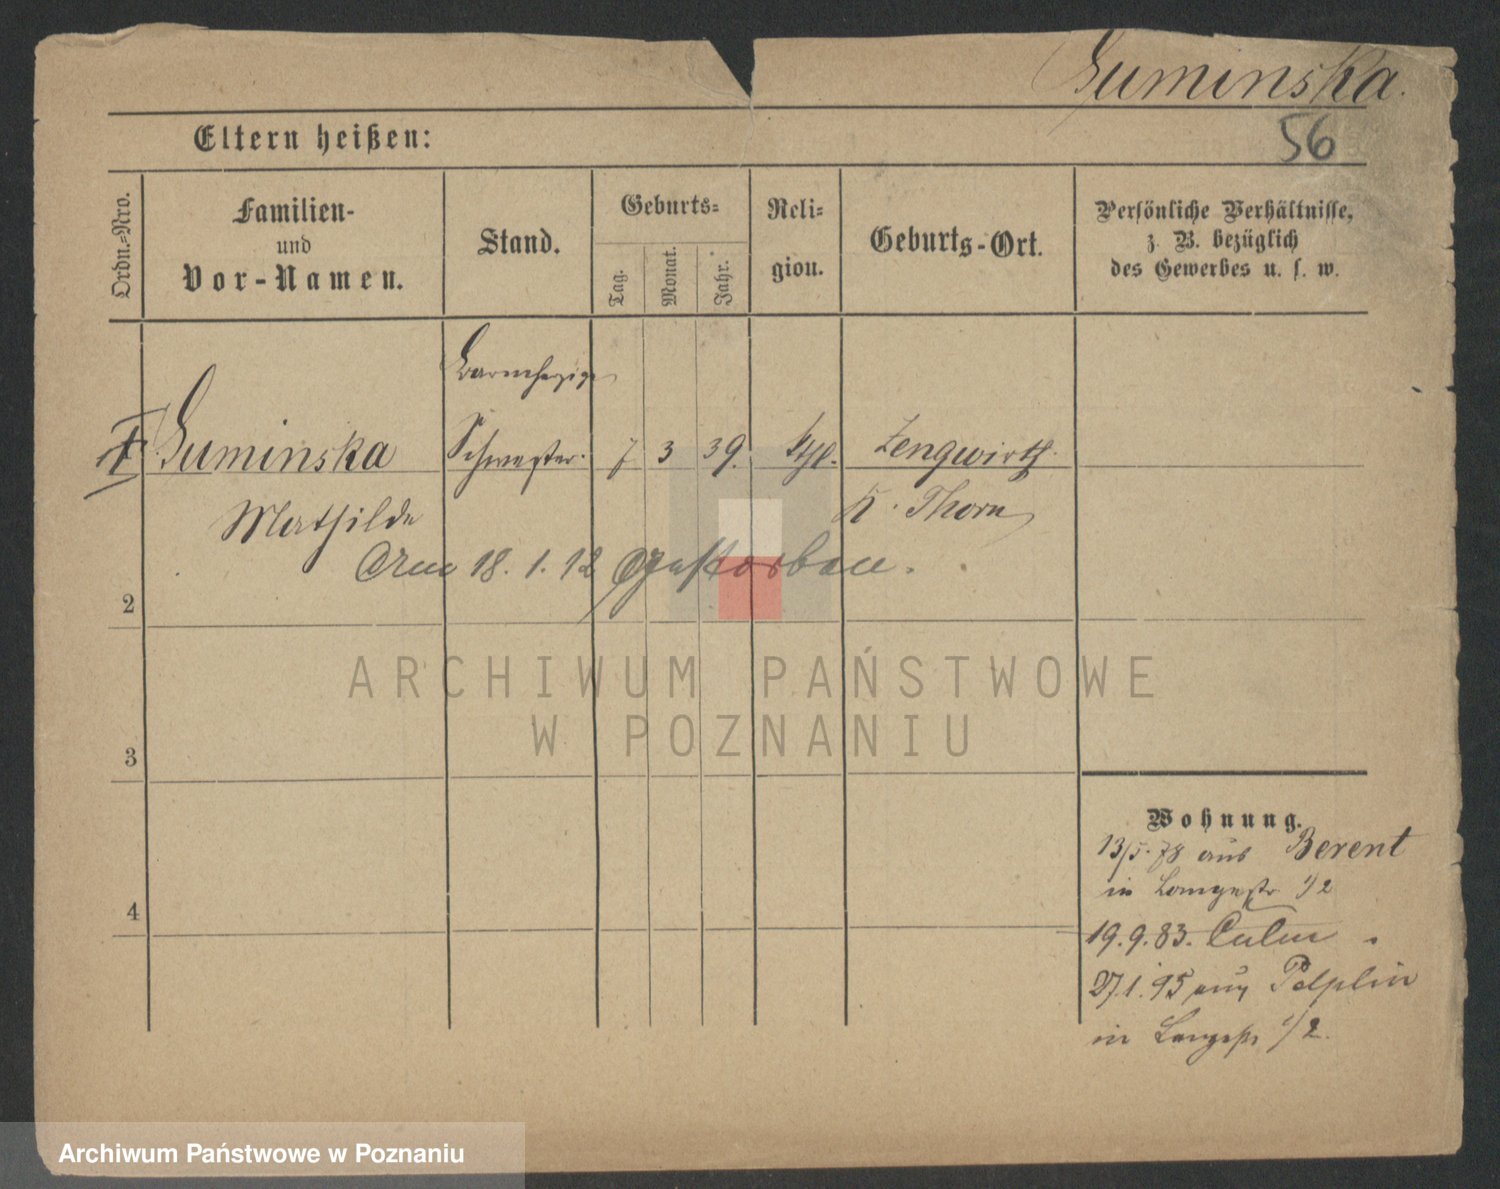 Guminska.
56
Eltern heißen:
Ordn.-Nro.
Familien-
und
Vor-Namen.
Stand.
Geburts-
Tag.
Monat.
Jahr.
Reli-
gion.
Geburts-Ort.
Persönliche Verhältnisse,
z. B. bezüglich
des Gewerbes u. s. w.
Barmherzige
Guminska Schwester. 7 3 39. kth. Lengwirth
Mathilde K. Thorn
Am 18. 1. 12 gestorben.
2
3
4
Wohnung.
13/5. 78 aus Berent
in Langestr 1/2
19. 9. 83. Culm
27. 1. 95 aus Pelplin
in Langestr 1/2.
ARCHIWUM PAŃSTWOWE
W POZNANIU
Archiwum Państwowe w Poznaniu